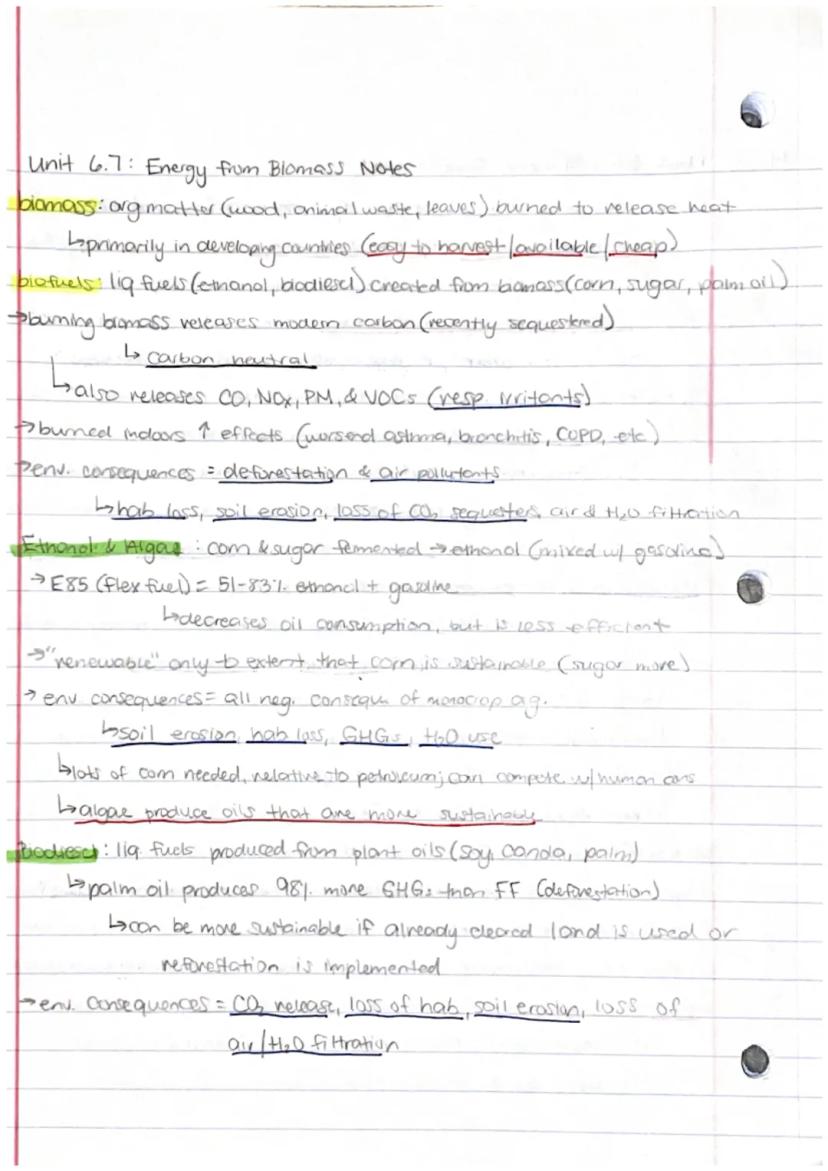 Unit 6.7: Energy from Biomass Notes
biomass: org matter (wood, animal waste, leaves) burned to release heat
↳primarily in developing countries (easy to harvest/available/cheap)
biofuels: liq fuels (ethanol, biodiesel) created from biomass (corn, sugar, palm oil)
→burning biomass releases modern carbon (recently sequestered)
↳ carbon neutral
↳also releases CO, NOx, PM, & VOCs (resp. irritants)
→burned indoors ↑ effects (worsend asthma, bronchitis, COPD, etc.)
→env. consequences = deforestation & air pollutants
↳hab loss, soil erosion, loss of CO₂ sequesters, air & H₂O filtration
Ethanol & Algae : corn & sugar fermented → ethanol (mixed w/ gasoline)
→ E85 (flex fuel) = 51-83% ethanol + gasoline
↳decreases oil consumption, but is less efficient
→"renewable" only to extent that corn is sustainable (sugar more)
→ env consequences = all neg. consequ. of monocrop ag.
↳soil erosion, hab loss, GHGs, H₂O use
↳lots of corn needed, relative to petroleum; can compete w/ human cons
↳algae produce oils that are more sustainably
Biodiesel: liq. fuels produced from plant oils (soy, canola, palm)
↳palm oil produces 98% more GHGs than FF (deforestation)
↳can be more sustainable if already cleared land is used or
reforestation is implemented
→env. consequences = CO₂ release, loss of hab, soil erosion, loss of
air/H₂O filtration